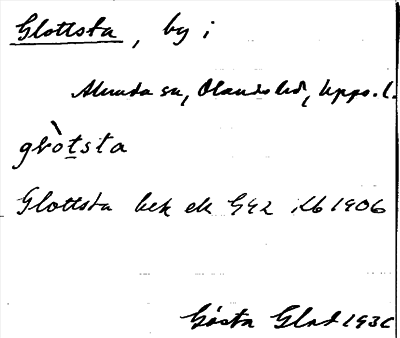 Glottsta, by i
Almunda sn, Olands hd, Upps. l.
glòtsta
Glottsta bek ek G42 ilb 1906
Gösta Glad 1936